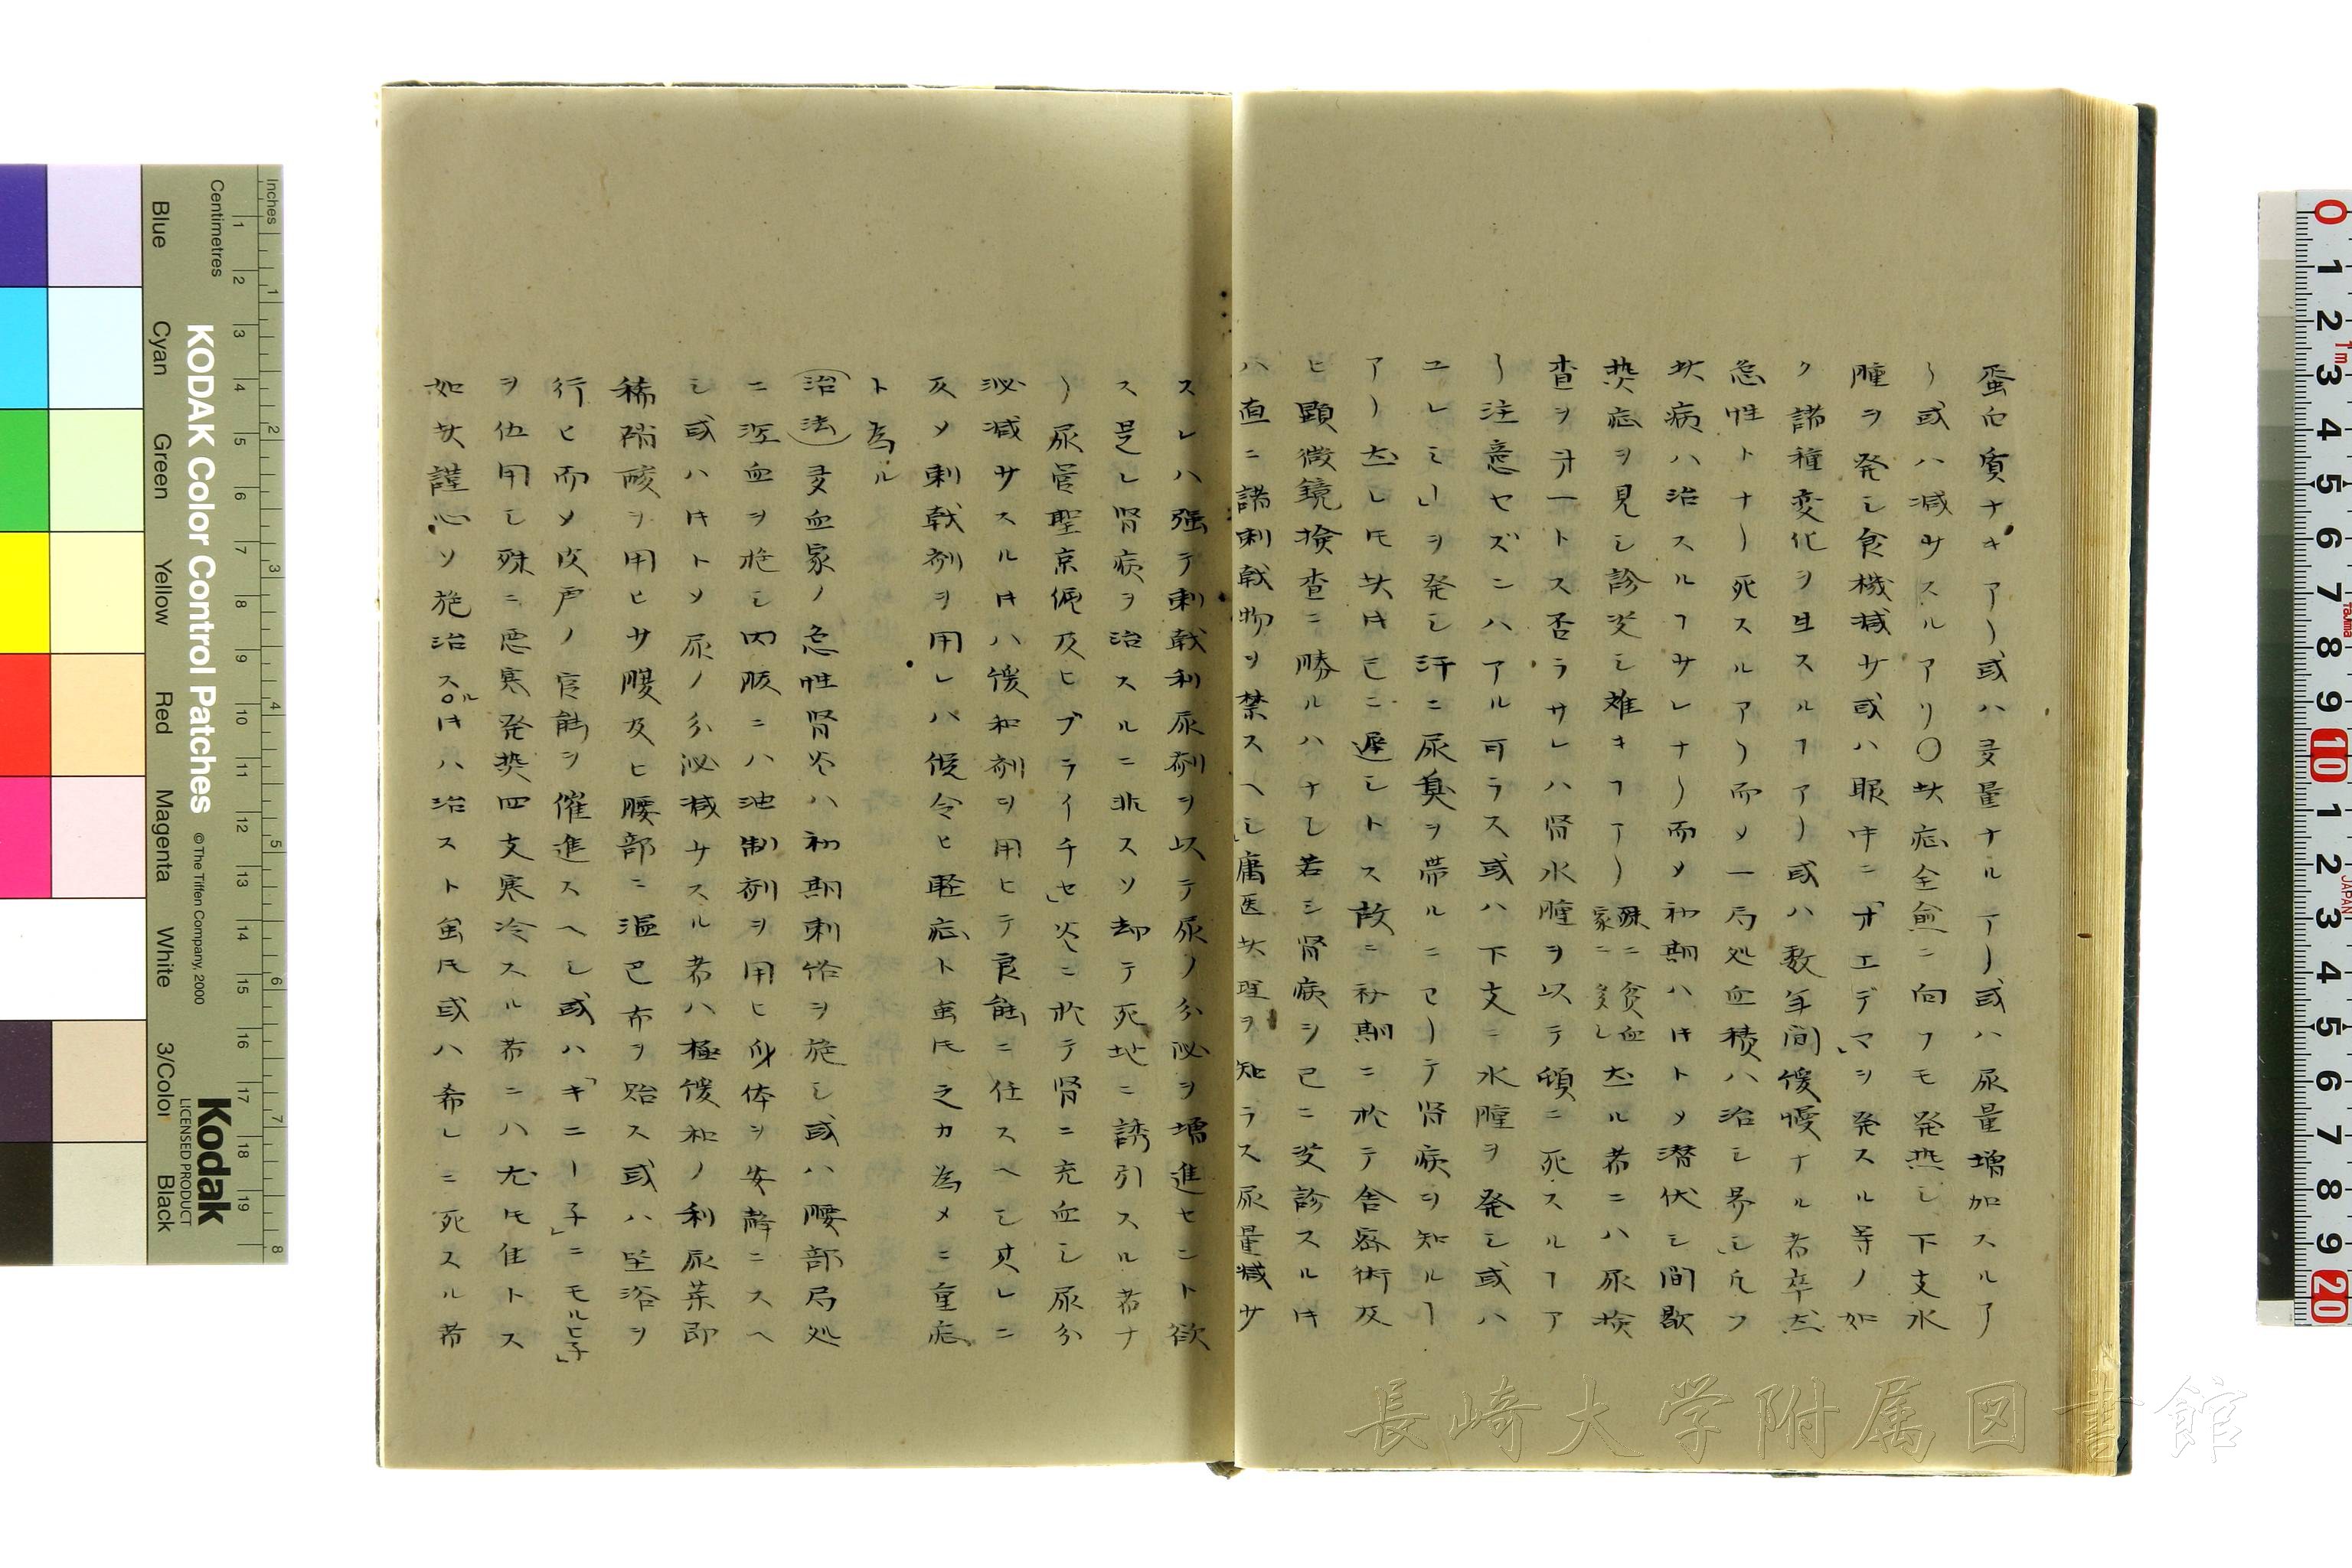 蛋白質ナキアリ或ハ多量ナルアリ或ハ尿量増加スルア
リ或ハ減サスルアリ〇此症全愈ニ向フモ発熱シ下支水
腫ヲ発シ食機減サ或ハ眼中ニ「オエデマ」ヲ発スル等ノ如
ク諸種変化ヲ生スルヿアリ或ハ数年間慢慢ナル者卒然
急性トナリ死スルアリ而メ一局処血積ハ治シ易シ凡ソ
此病ハ治スルヿサレナリ而メ初期ハ時トメ潜伏シ間歇
熱症ヲ見シ診定シ難キヿアリ殊ニ貧血家ニ多シ然ル者ニハ尿検
査ヲ第一トス否ラサレハ腎水腫ヲ以テ頓ニ死スルヿア
リ注意セズンハアル可ラス或ハ下支ニ水腫ヲ発シ或ハ
ユレミー」ヲ発シ汗ニ尿臭ヲ帯ルニヨリテ腎病ヲ知ルヿ
アリ然レ𪜈此時已ニ遅シトス故ニ初期ニ於テ舎密術及
ヒ顕微鏡検査ニ勝ルハナシ若シ腎病ヲ已ニ定診スル時
ハ直ニ諸刺戟物ヲ禁スヘシ庸医此理ヲ知ラス尿量減サ
スレハ強テ刺戟利尿剤ヲ以テ尿ノ分泌ヲ増進セント欲
ス是レ腎病ヲ治スルニ非スソ却テ死地ニ誘引スル者ナ
リ尿管聖京偲及ヒブライチセ」炎ニ於テ腎ニ充血シ尿分
泌減サスル時ハ緩和剤ヲ用ヒテ良能ニ任スヘシ其レニ
反メ刺戟剤ヲ用レハ仮令ヒ軽症ト雖𪜈之カ為メニ重症
ト為ル
(治法)多血家ノ急性腎炎ハ初期刺絡ヲ施シ或ハ腰部局処
ニ瀉血ヲ施シ内服ニハ沈制剤ヲ用ヒ身体ヲ安静ニスヘ
シ或ハ時トメ尿ノ分泌減サスル者ハ極緩和ノ利尿薬即
稀硝酸ヲ用ヒサ腹及ヒ腰部ニ温巴布ヲ貽ス或ハ坐浴ヲ
行ヒ而メ皮膚ノ官能ヲ催進スヘシ或ハ「キニーネ」ニモルヒネ」
ヲ伍用シ殊ニ悪寒発熱四支寒冷スル者ニハ尤𪜈佳トス
如此謹心ソ施治スル時ハ治スト雖𪜈或ハ希レニ死スル者